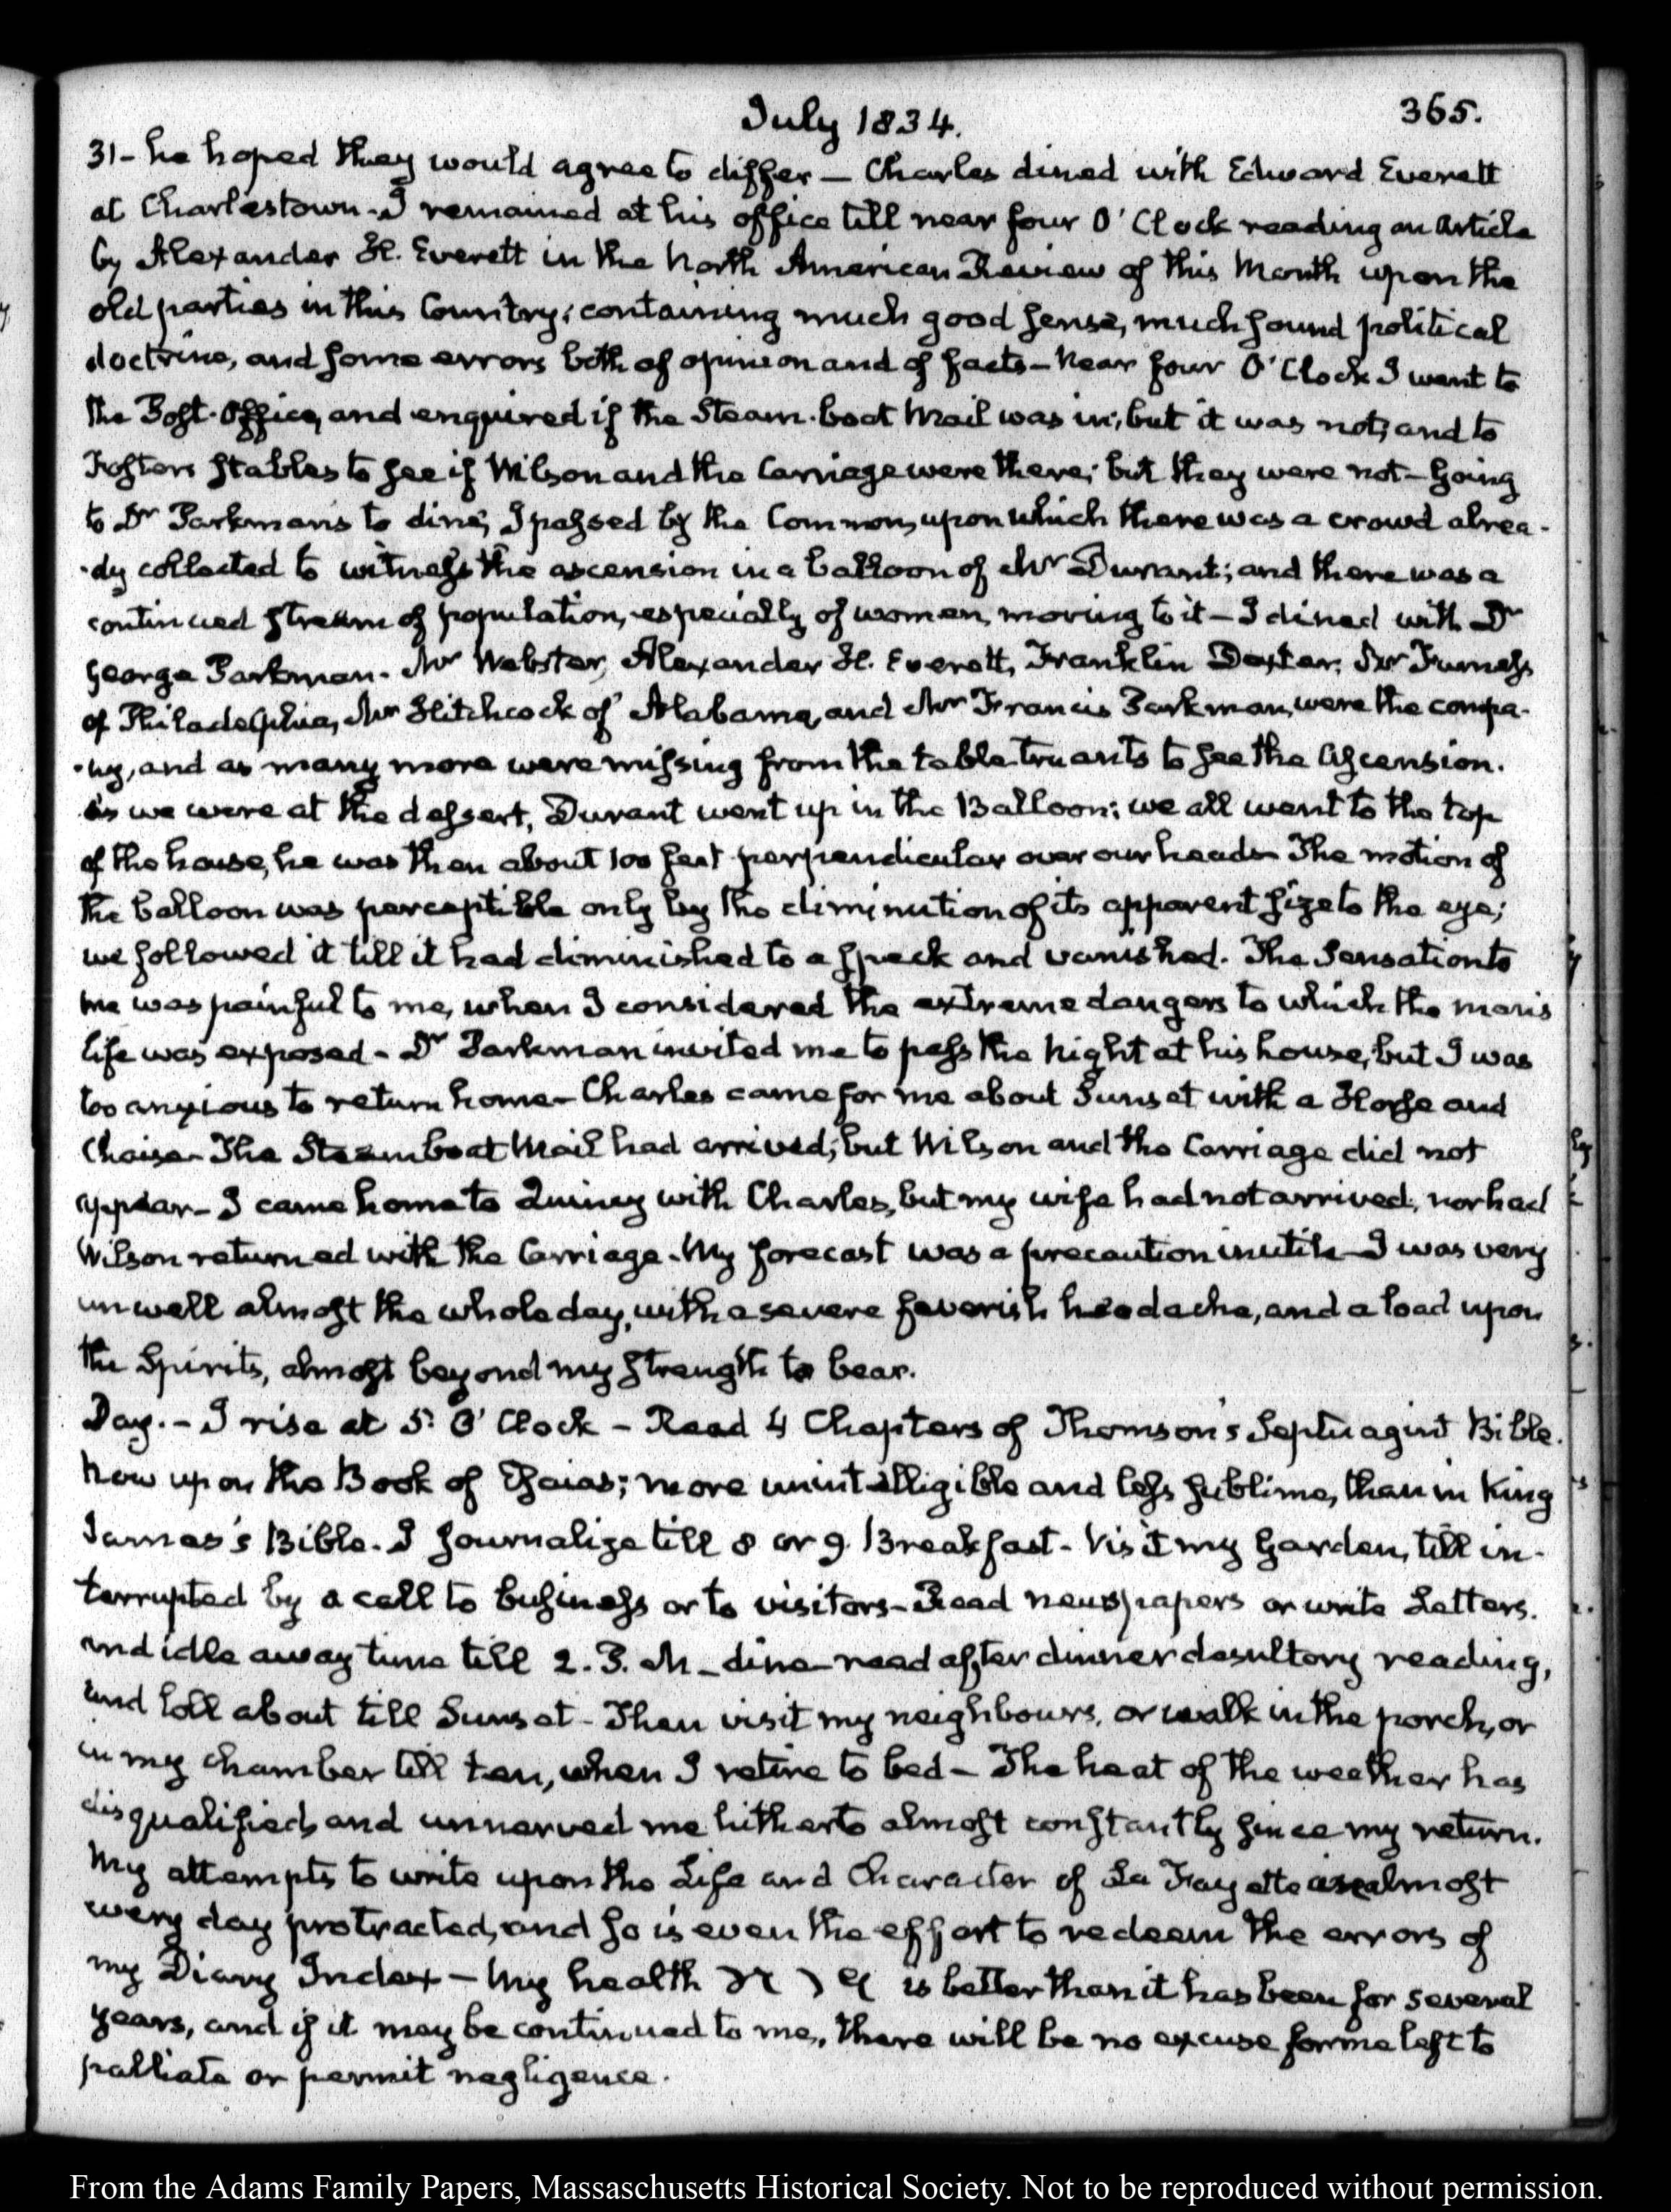 July 1834.
365.
31- he hoped they would agree to differ — Charles dined with Edward Everett
at Charlestown. I remained at his office till near four O' Clock reading an article
by Alexander H. Everett in the North American Review of this Month upon the
old parties in this Country; containing much good sense, much sound political
doctrine, and some errors both of opinion and of facts — Near four O' Clock I went to
the Post-Office, and enquired if the Steam-boat Mail was in; but it was not; and to
Fosters Stables to see if Wilson and the Carriage were there; but they were not — Going
to Dr Parkman's to dine, I passed by the Common, upon which there was a crowd alrea-
-dy collected to witness the ascension in a balloon of Mr Durant; and there was a
continued stream of population, especially of women, moving to it — I dined with Dr
George Parkman. Mr Webster, Alexander H. Everett, Franklin Dexter, Mr Furness
of Philadelphia, Mr Hitchcock of Alabama, and Mr Francis Parkman, were the compa-
-ny, and as many more were missing from the table truants to see the Ascension.
As we were at the dessert, Durant went up in the Balloon; we all went to the top
of the house, he was then about 100 feet perpendicular over our heads The motion of
the balloon was perceptible only by the diminution of its apparent size to the eye;
we followed it till it had diminished to a speck and vanished. The Sensation to
me was painful to me, when I considered the extreme dangers to which the man's
life was exposed — Dr Parkman invited me to pass the Night at his house, but I was
too anxious to return home — Charles came for me about Sunset with a Horse and
Chaise — The Steamboat Mail had arrived; but Wilson and the Carriage did not
appear — I came home to Quincy with Charles, but my wife had not arrived, nor had
Wilson returned with the Carriage. My forecast was a precaution inutile — I was very
unwell almost the whole day, with a severe feverish headache, and a load upon
the Spirits, almost beyond my strength to bear.
Day. — I rise at 5. O' Clock — Read 4 Chapters of Thomson's Septuagint Bible.
Now upon the Book of Esaias; more unintelligible and less sublime, than in King
James's Bible. I journalize till 8 or 9. Breakfast. Visit my Garden, till in-
terrupted by a call to business or to visitors — Read newspapers or write Letters.
and idle away time till 2. P. M — dine — read after dinner desultory reading,
and loll about till Sunset — Then visit my neighbours, or walk in the porch, or
in my chamber till ten, when I retire to bed — The heat of the weather has
disqualified and unnerved me hitherto almost constantly since my return.
My attempts to write upon the Life and Character of La Fayette are almost
every day protracted, and so is even the effort to redeem the errors of
my Diary Index — My health is better than it has been for several
years, and if it may be continued to me, there will be no excuse for me left to
palliate or permit negligence.
From the Adams Family Papers, Massachusetts Historical Society. Not to be reproduced without permission.